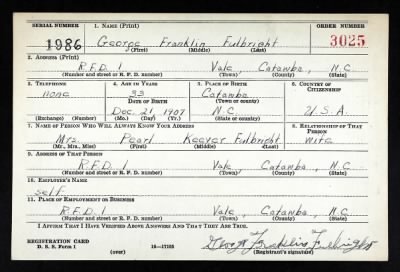 SERIAL NUMBER 1. NAME (Print) ORDER NUMBER
1986 George Franklin Fulbright 3025
(First) (Middle) (Last)
2. ADDRESS (Print)
R.F.D. 1 Vale, Catawba, N.C.
(Number and street or R. F. D. number) (Town) (County) (State)
3. TELEPHONE 4. AGE IN YEARS 5. PLACE OF BIRTH 6. COUNTRY OF CITIZENSHIP
none 33 Catawba
DATE OF BIRTH (Town or county)
Dec. 21, 1907 N.C. U.S.A.
(Exchange) (Number) (Mo.) (Day) (Yr.) (State or country)
7. NAME OF PERSON WHO WILL ALWAYS KNOW YOUR ADDRESS 8. RELATIONSHIP OF THAT PERSON
Mrs. Pearl Keever Fulbright Wife
(Mr., Mrs., Miss) (First) (Middle) (Last)
9. ADDRESS OF THAT PERSON
R.F.D. 1 Vale, Catawba, N.C.
(Number and street or R. F. D. number) (Town) (County) (State)
10. EMPLOYER'S NAME
self
11. PLACE OF EMPLOYMENT OR BUSINESS
R.F.D. 1 Vale, Catawba, N.C.
(Number and street or R. F. D. number) (Town) (County) (State)
I AFFIRM THAT I HAVE VERIFIED ABOVE ANSWERS AND THAT THEY ARE TRUE.
REGISTRATION CARD George Franklin Fulbright
D. S. S. Form 1 (over) 16—17105 (Registrant's signature)